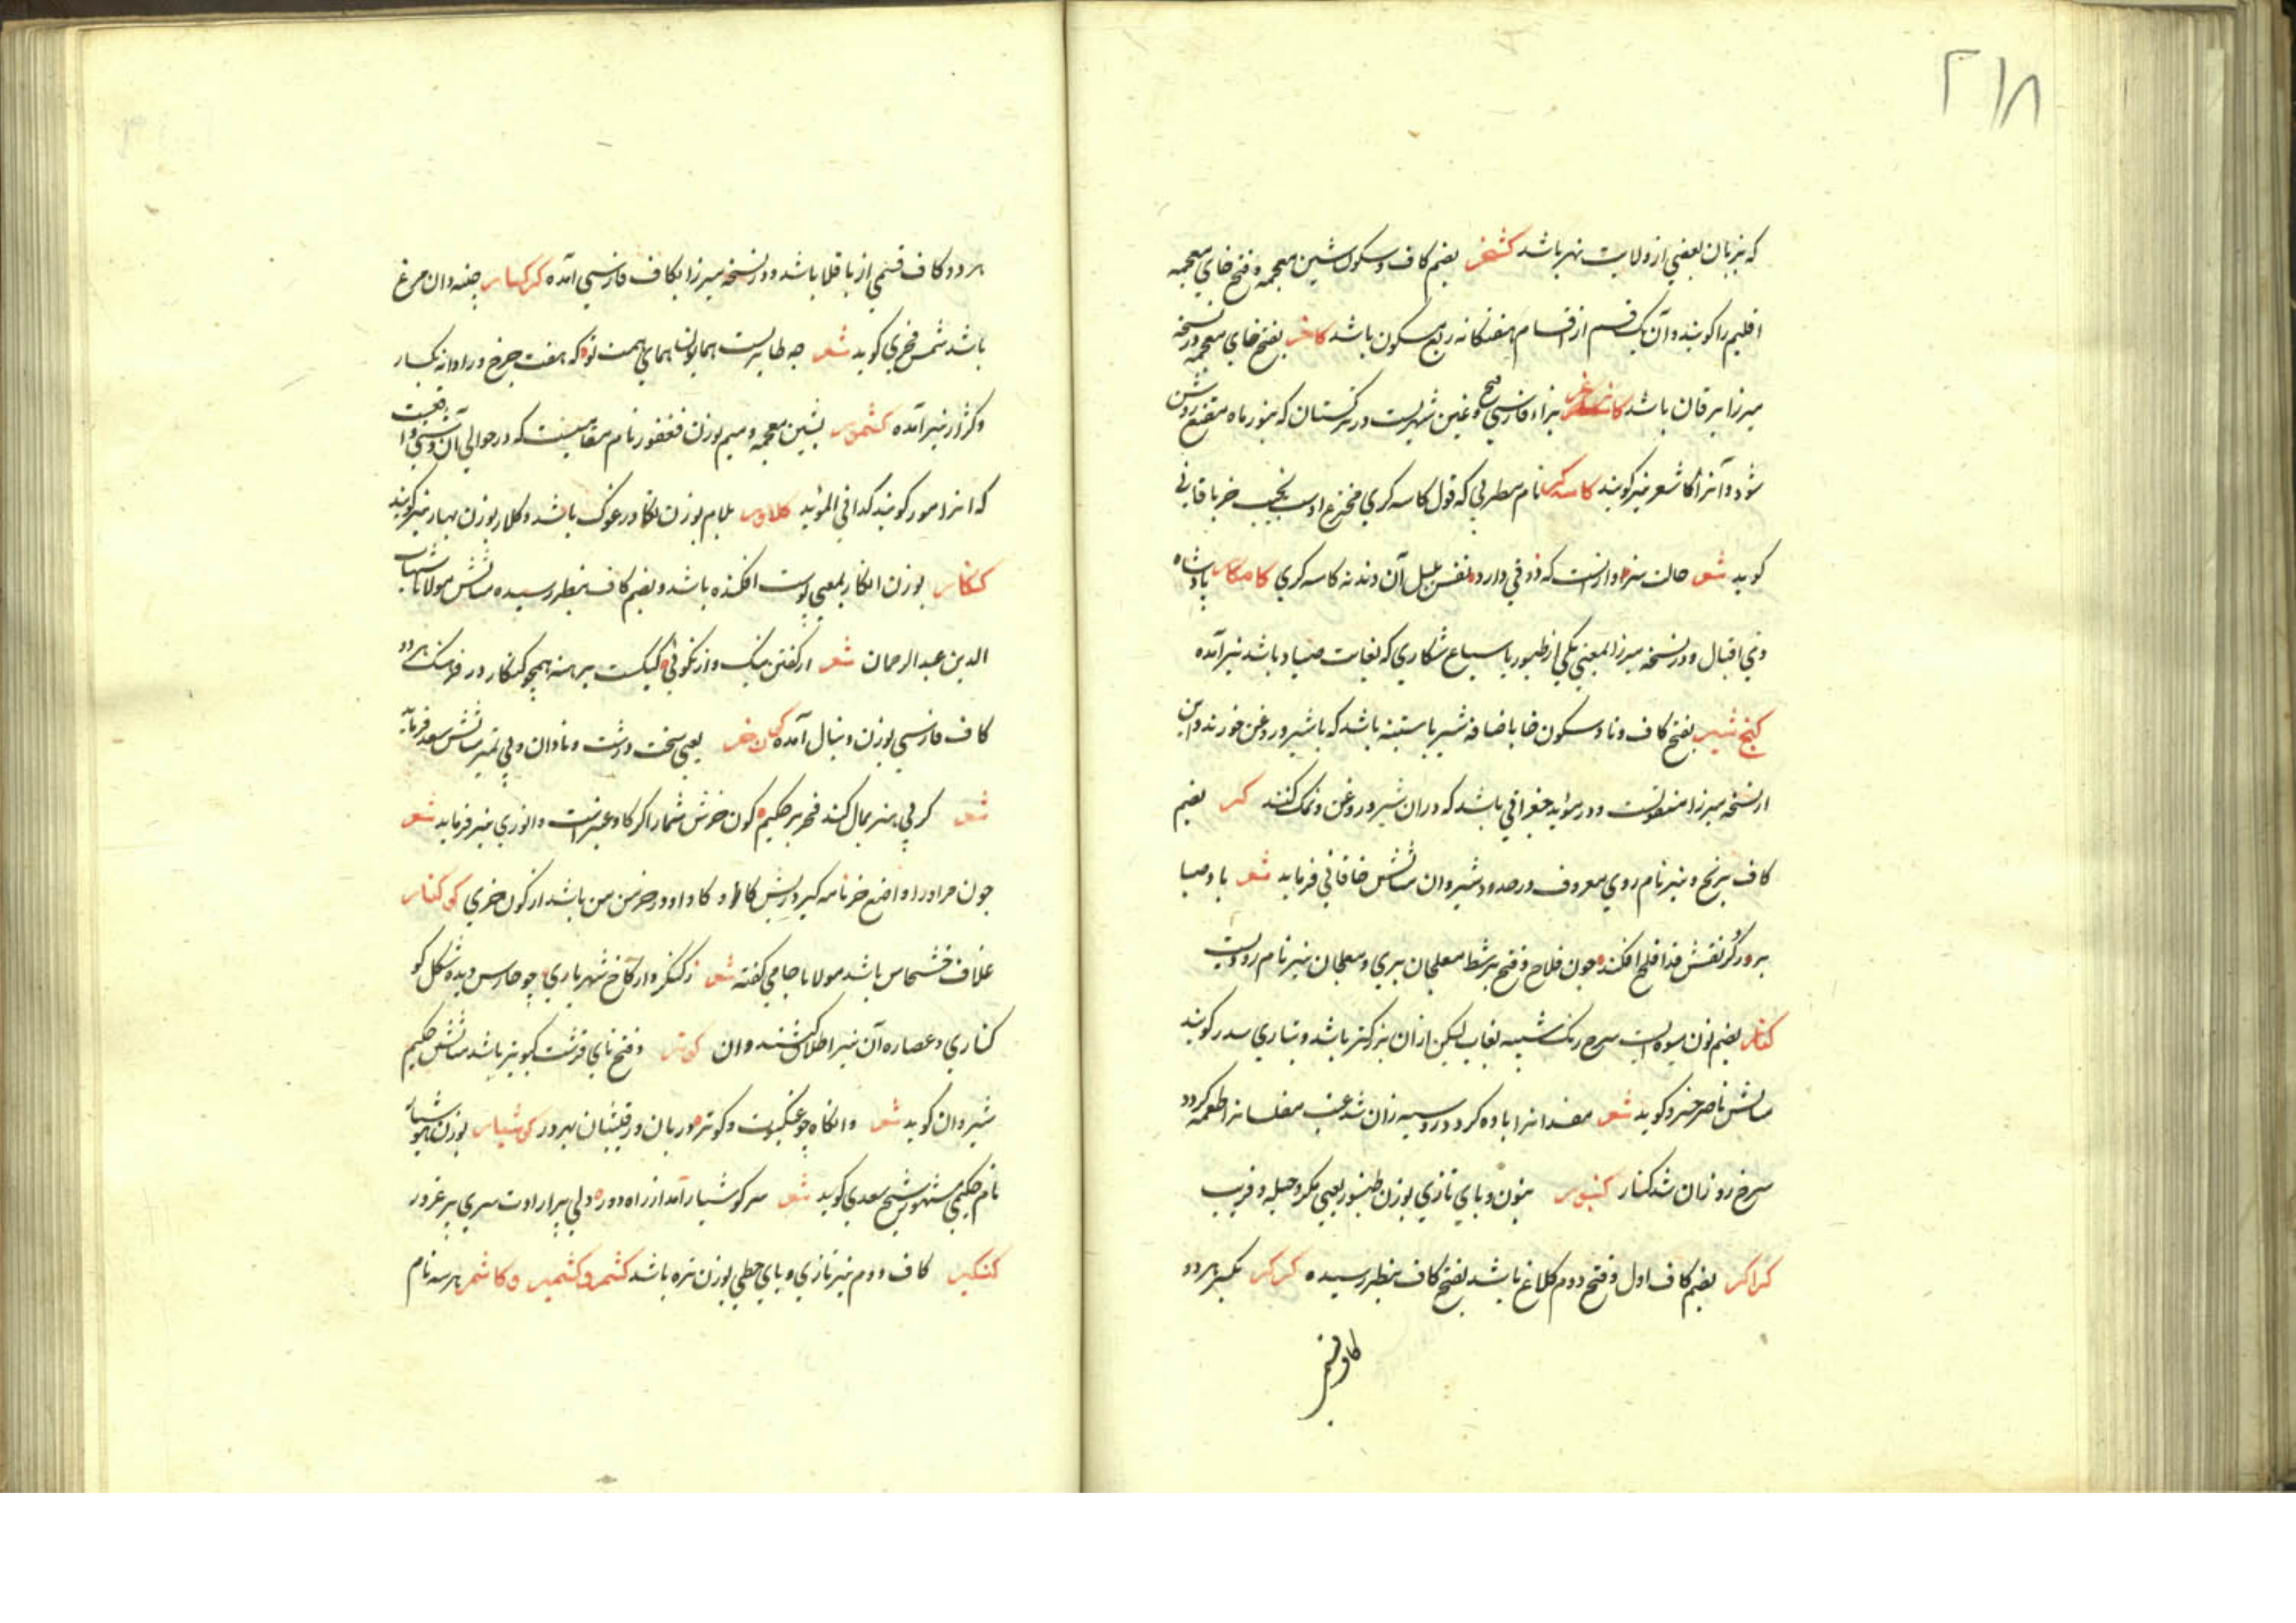 ۲۱۸
که بزبان بعضی از ولایت نهر باشد کشخر بضم کاف و سکون شین معجمه و فتح خای معجمه
اقلیم را کویند و آن یک قسم از اقسام هفتکانه ربع مسکون باشد کاخر بفتح خای معجمه در نسخه
میرزا یرقان باشد بزاء فارسی و غین شهریست در ترکستان که بنور ماه مقنع روشن
شود و آنرا کاشغر نیز کویند کاسه کر نام مطربی که قول کاسه کری مخترع اوست خاقانی
کوید شعر حالت سزاوار است که ذوقی دارد نفس بلبل آن دندنه کاسه کری کامکار پادشاه
ذی اقبال و در نسخه میرزا بمعنی یکی از طیور یا سباع شکاری که بغایت صیاد باشد نیز آمده
کنخ شیر بفتح کاف و نا و سکون خا باضافه شیر باستینه باشد که با شیر و روغن خورند و این
از نسخه میرزا منقولست و در مؤید جغراتی باشد که در ان شیر و روغن و نمک کنند کر بضم
کاف برنج و نیز نام رودی معروف در حدود شیروان مثالش خاقانی فرماید شعر باد صبا
بر ورد کر نقش قد افلح افکند چون فلاح و فتح بر شط معلجان بری و معلجان نیز نام رودیست
کنار بضم نون میوه ایست سرخ رنک شبیه بعناب لیکن از ان بزرکتر باشد و بتازی سدر کویند
مثالش ناصر خسرو کوید شعر مفسدانرا باده کرد و در وسیه زان شد عنب مفلسانرا طعمه کردد
سرخ رو زان شد کنار کنبور بنون و بای تازی بوزن طنبور یعنی مکر و حیله و فریب
کراکر بضم کاف اول و فتح دوم کلاغ باشد بفتح کاف بنظر رسیده کرکر بکسر هردو
هردو کاف قسمی از باقلا باشد و در نسخه میرزا بکاف فارسی آمده کرکسار چینه دان مرغ
باشد شمس فخری کوید شعر چه طایریست همایون همای همت تو که هفت چرخ ورا دانه بکسار
و کژار نیز آمده کشمور بشین معجمه و میم بوزن فغفور نام مقامیست که در حوالی آن دشتی واقعست
که انرا مور کویند کذا فی المؤید کلاور بلام بوزن تکاور غوک باشد و کلار بوزن بهار نیز کویند
کنکار بوزن انکار بمعنی پوست افکنده باشد و بضم کاف بنظر رسیده مثالش مولانا شهاب
الدین عبد الرحمان شعر از کفتن نیک و از نکوئی برهنه همچو کنکار در فرهنک هردو
کاف فارسی بوزن دنبال آمده کون خر یعنی سخت درشت و نادان و بی تمیز مثالش سعدی فرماید
شعر کر بی هنر بمال کند فخر بر حکیم کون خرش شمار اکر کاو عنبر است و انوری نیز فرماید شعر
چون مر او را و اضع خر نامه کیر و ریش کاو کاو او در خرمن من باشد از کون خری کوکنار
غلاف خشخاش باشد مولانا جامی کفته شعر ز کنکر وار کاخ شهریاری چو حارس دیده شکل کو
کناری و عصاره آن نیز اطلاق کنند وان کوتر و فتح تای قرشت کبوتر باشد مثالش حکیم
شیروان کوید شعر وانکاه چو عنکبوت و کوتر دربان ور قیبشان بهر در کوشیار بوزن هوشیار
نام حکیمی مشهور شیخ سعدی کوید شعر سر کوشیار آمد از راه دور دلی پر ارادت سری پر غرور
کنکیر کاف دوم نیز تازی و یای حطی بوزن نره باشد کشمر و کشمیر و کاشمر هر سه نام